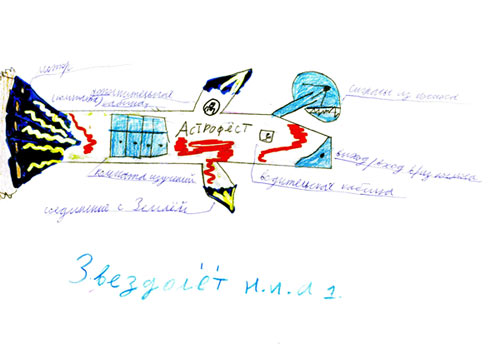 мотор
АСТРОФЁСТ
сигналы из космоса
выход/вход в
комната изучений
водительская кабина
соединение с Землёй
Звездолёт н.л.л 1.